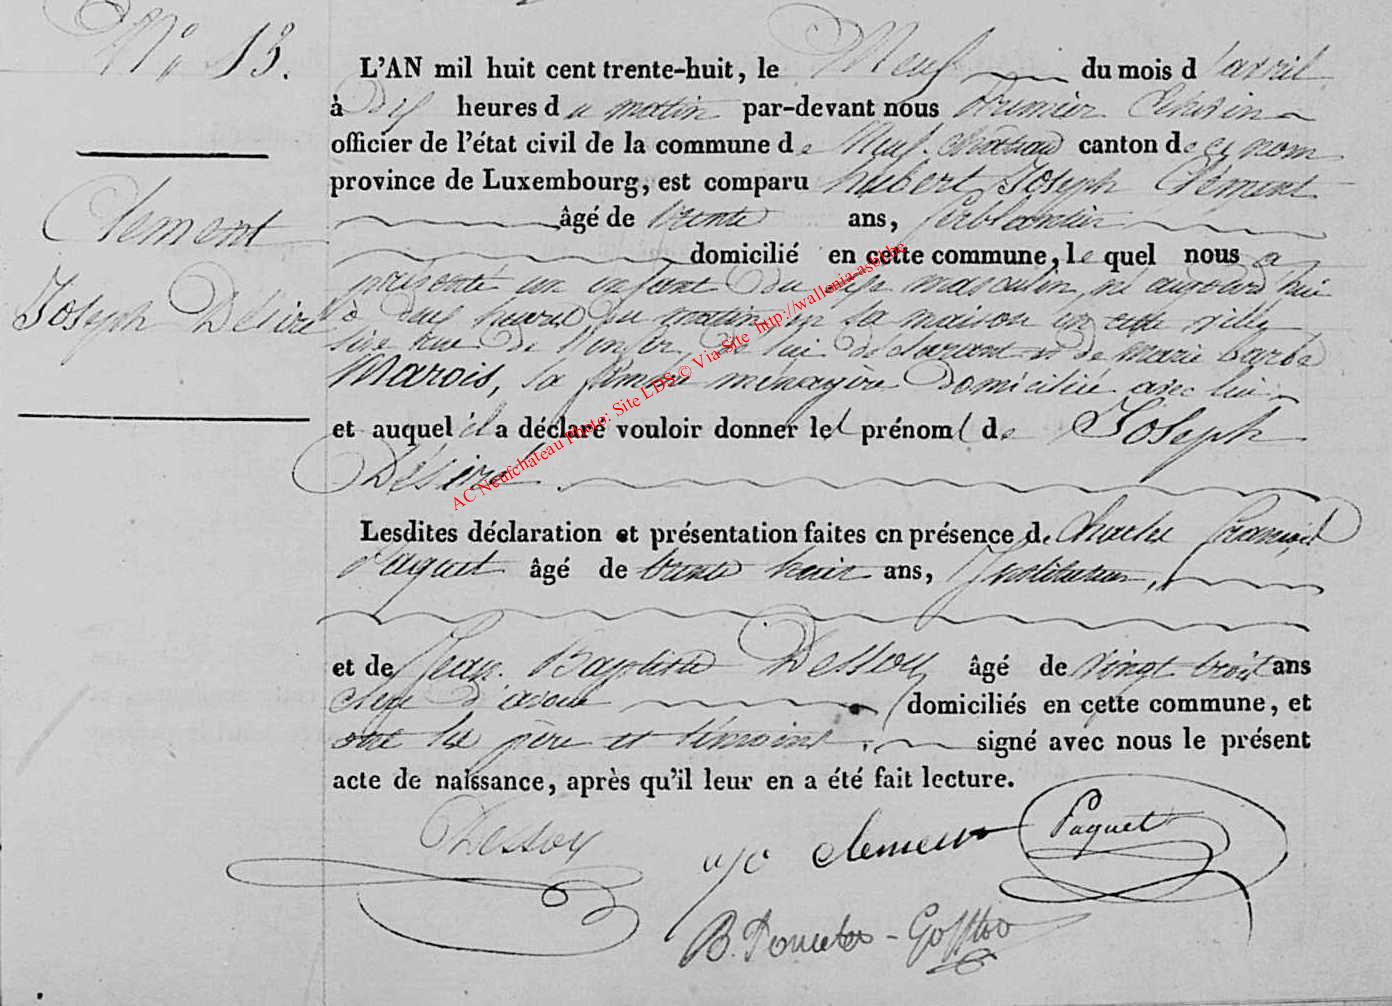 N° 13.
Clement
Joseph Désiré
L'AN mil huit cent trente-huit, le Neuf du mois d'avril
à Dix heures du matin par-devant nous Premier Echevin
officier de l'état civil de la commune de Neufchateau canton de ce nom
province de Luxembourg, est comparu hubert Joseph Clément
âgé de trente ans, ferblantier
domicilié en cette commune, lequel nous a
présenté un enfant du sexe masculin né aujourd'hui
à deux heures du matin en sa maison en cette ville
sise rue de l'enfer, de lui déclarant et de marie barbe
Marois, sa femme ménagère domiciliée avec lui
et auquel il a déclaré vouloir donner les prénoms de Joseph
Désiré.
Lesdites déclaration et présentation faites en présence de Charles François
Paquet âgé de trente huit ans, Instituteur,
et de Jean Baptiste Dessoy âgé de vingt trois ans
clerc d'avoué domiciliés en cette commune, et
ont les père et témoins signé avec nous le présent
acte de naissance, après qu'il leur en a été fait lecture.
Dessoy clement Paquet
B.
AC Neufchateau Photo: Site LDS © Via Site http://wallonia-asbl.be